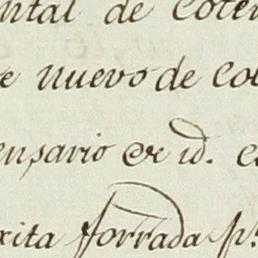 ntal de Coten
e nuevo de Col
ensario &c id. e
xita forrada p.